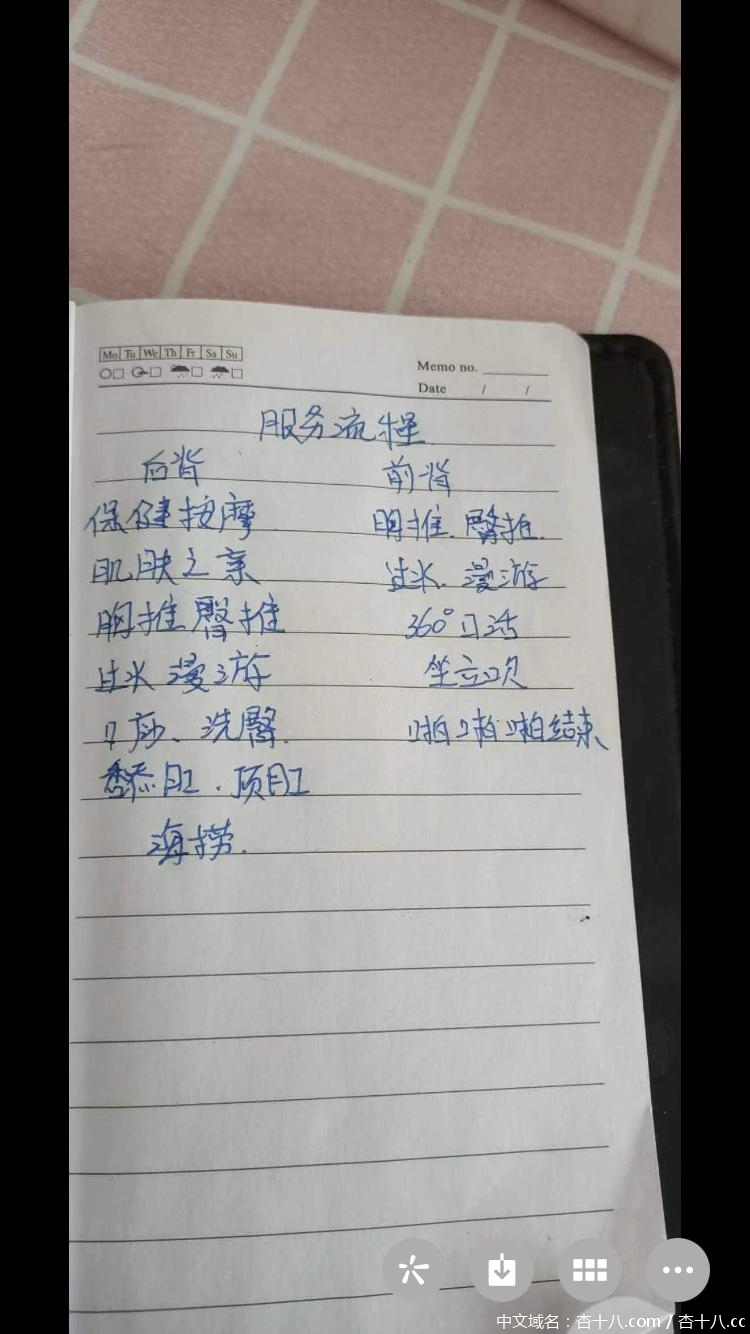 Mo Tu We Th Fr Sa Su
Memo no.
Date / /
服务流程
后背
前背
保健按摩
肌肤之亲
胸推臀推
过水 漫游
口活、洗臀
舔肛.顶肛
海捞.
胸推.臀推.
过水.漫游
360°口活
坐立吹
啪啪啪结束、
中文域名：杏十八.com / 杏十八.cc